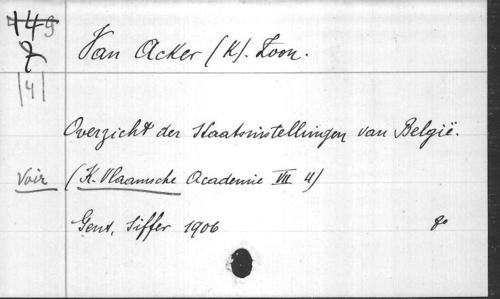 149
141
Van Acker (K). Zoon.
Overzicht der Staatsinstellingen van België.
Voir (K. Vlaamsche Academie VII 4)
Gent, Siffer 1906 8°